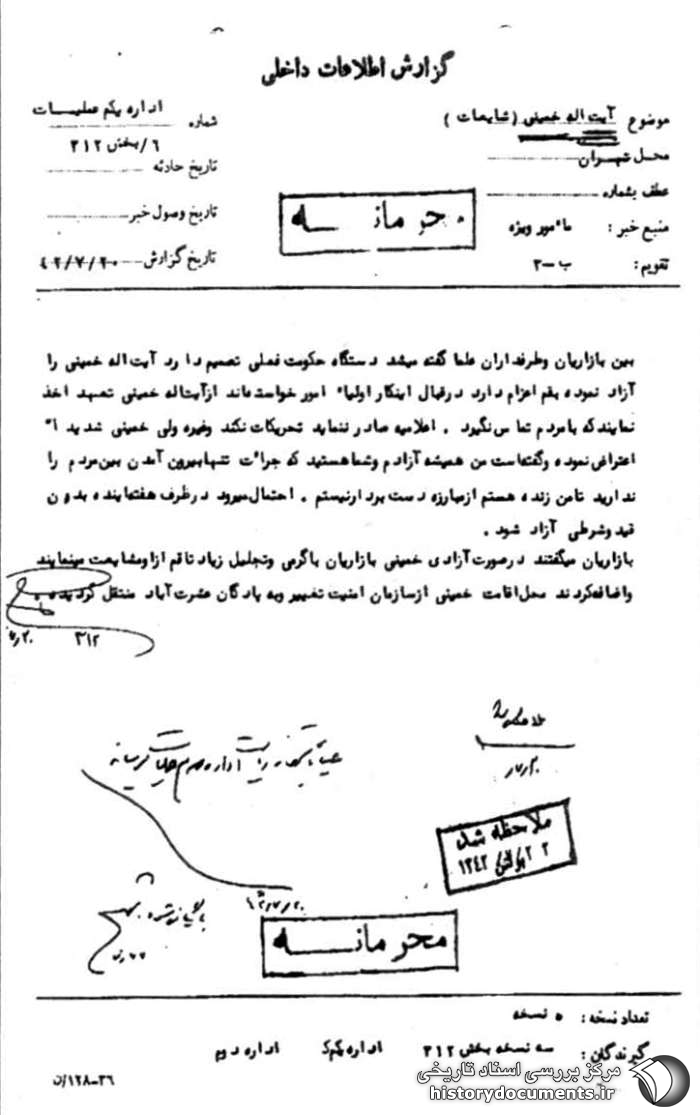 گزارش اطلاعات داخلی
موضوع آیت اله خمینی (شایعات)
محل تهران
عطف بشماره
منبع خبر : مأمور ویژه
تقویم : ب-۲
شماره اداره یکم عملیات
۶/بخش ۳۱۲
تاریخ حادثه
تاریخ وصول خبر
تاریخ گزارش ۴۲/۷/۲۰
محرمانه
بین بازاریان وطرفداران علما گفته میشد دستگاه حکومت فعلی تصمیم دارد آیت اله خمینی را
آزاد نموده بقم اعزام دارد درقبال اینکار اولیاء امور خواسته‌اند ازآیت‌اله خمینی تعهد اخذ
نمایندکه بامردم تماس نگیرد . اعلامیه صادر ننماید تحریکات نکند وغیره ولی خمینی شدیداً
اعتراض نموده وگفته‌است من همیشه آزادم وشماهستید که جرائت تنهابیرون آمدن بین مردم را
ندارید تامن زنده هستم ازمبارزه دست بردارنیستم . احتمال میرود درظرف هفته‌آینده بدون
قید وشرطی آزاد شود .
بازاریان میگفتند درصورت آزادی خمینی بازاریان باگرمی وتجلیل زیاد تاقم ازاومشایعت مینمایند
واضافه‌کردند محل‌اقامت خمینی ازسازمان امنیت تغییر وبه پادگان عشرت آباد منتقل گردیده .
۳۱۲
ملاحظه شد
۱۳۴۲
محرمانه
تعداد نسخه : ۵ نسخه
گیرندگان : سه نسخه بخش ۳۱۲ اداره یکم اداره دوم
۱۲۸-۳۶/ن
مرکز بررسی اسناد تاریخی
historydocuments.ir